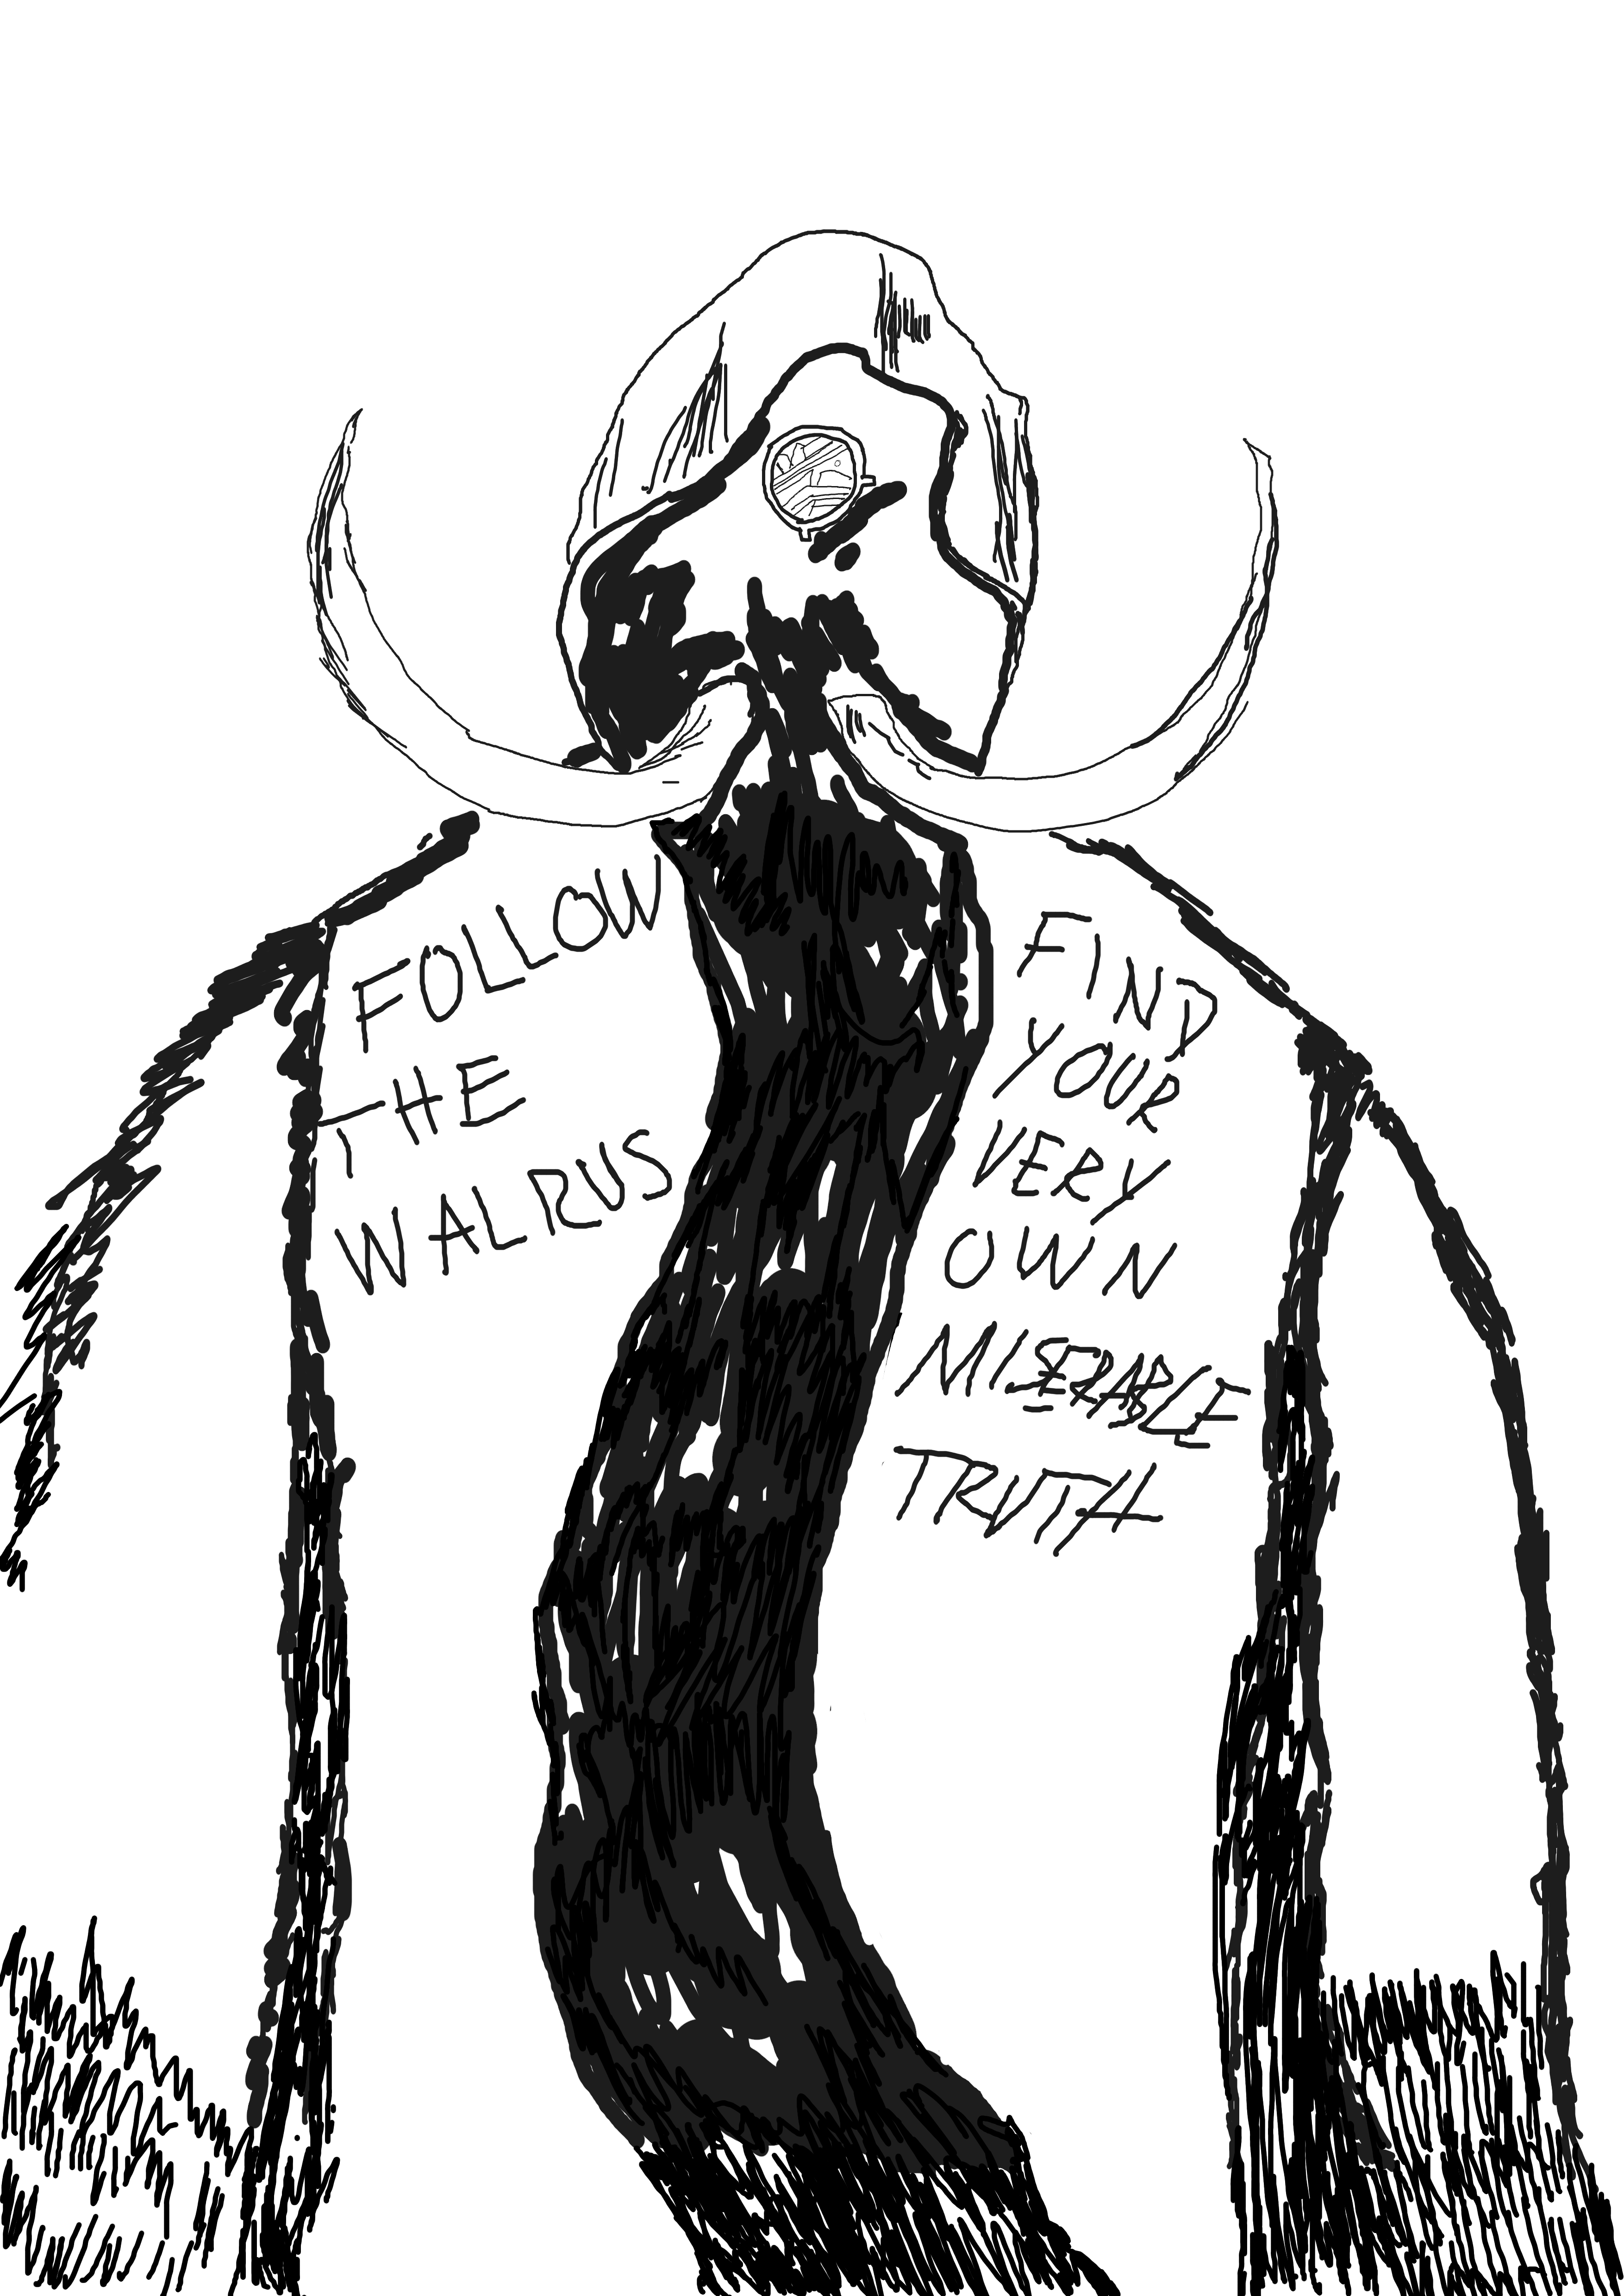 FOLLOW
THE
WALRUS
FIND
YOUR
VERY
OWN
MISERABLE
TRUTH